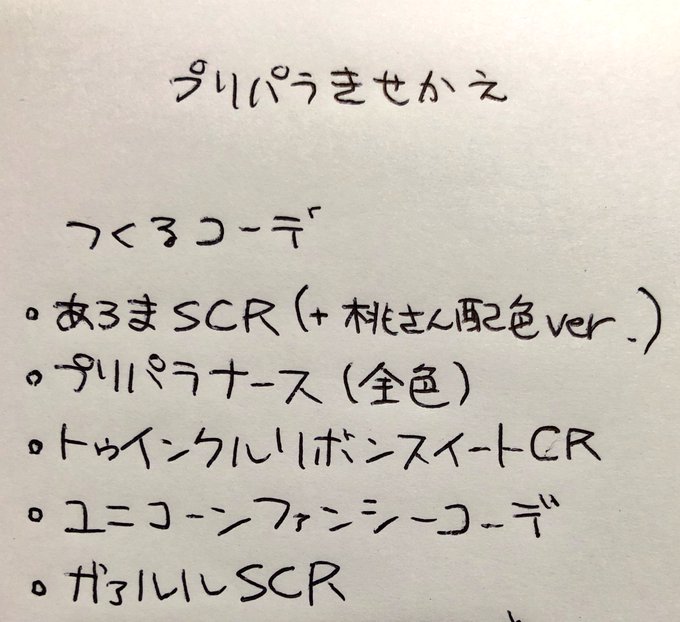 プリパラきせかえ
つくるコーデ
• あろまSCR(+桃さん配色ver.)
• プリパラナース(全色)
• トゥインクルリボンスイートCR
• ユニコーンファンシーコーデ
• ガァルルSCR